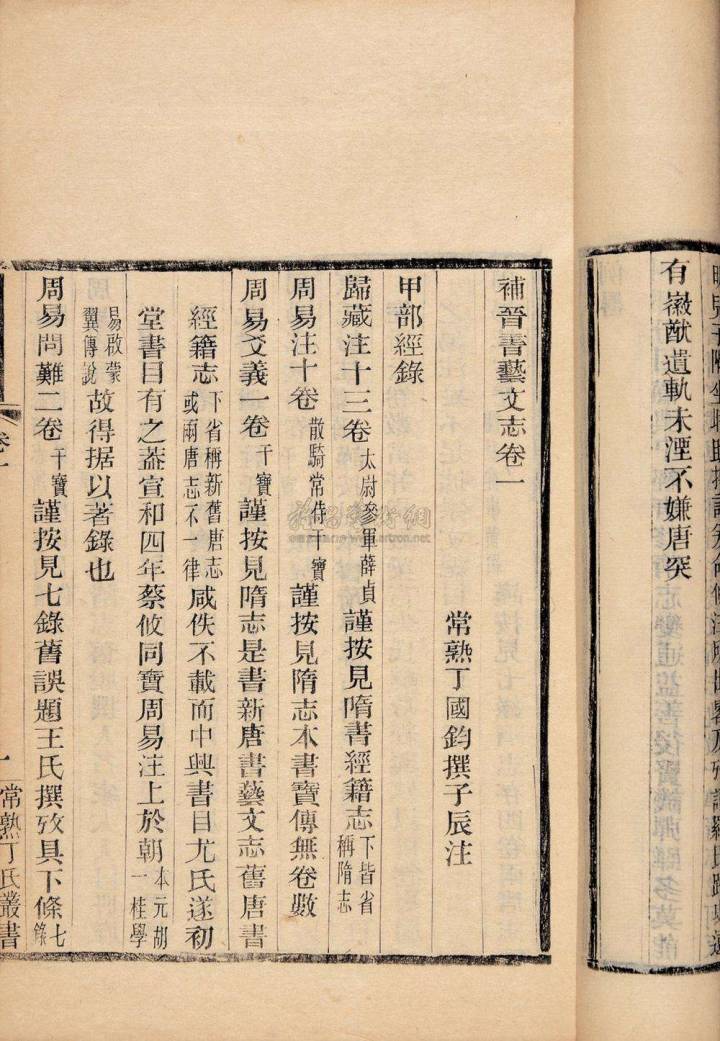 有徽猷遺軌未湮不嫌唐突
補晉書藝文志卷一
常熟丁國鈞撰子辰注
甲部經錄
歸藏注十三卷太尉參軍薛貞謹按見隋書經籍志下皆省稱隋志
周易注十卷散騎常侍干寶謹按見隋志本書寶傳無卷數
周易爻義一卷干寶謹按見隋志是書新唐書藝文志舊唐書
經籍志下省稱新舊唐志或兩唐志不一律咸佚不載而中興書目尤氏遂初
堂書目有之葢宣和四年蔡攸同寶周易注上於朝本元胡一桂學
易啟蒙翼傳說故得据以著錄也
周易問難二卷干寶謹按見七錄舊誤題王氏撰攷具下條七錄
卷一
一
常熟丁氏叢書